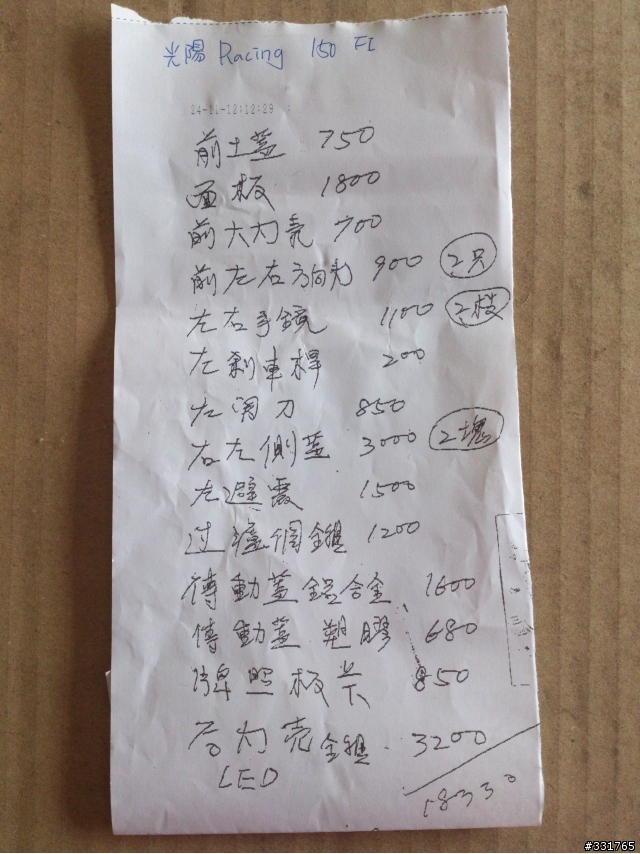 光陽 Racing 150 FI
24-11-12:12:29
前土蓋 750
面板 1800
前大灯壳 700
前左右方向灯 900 2只
左右手鏡 1100 2枝
左刹車桿 200
左滑刀 850
右左側蓋 3000 2塊
左避震 1500
过濾個鎖 1200
傳動蓋鋁合金 1600
傳動蓋 塑膠 680
牌照板 850
后灯壳 3200
LED
18330
#331765